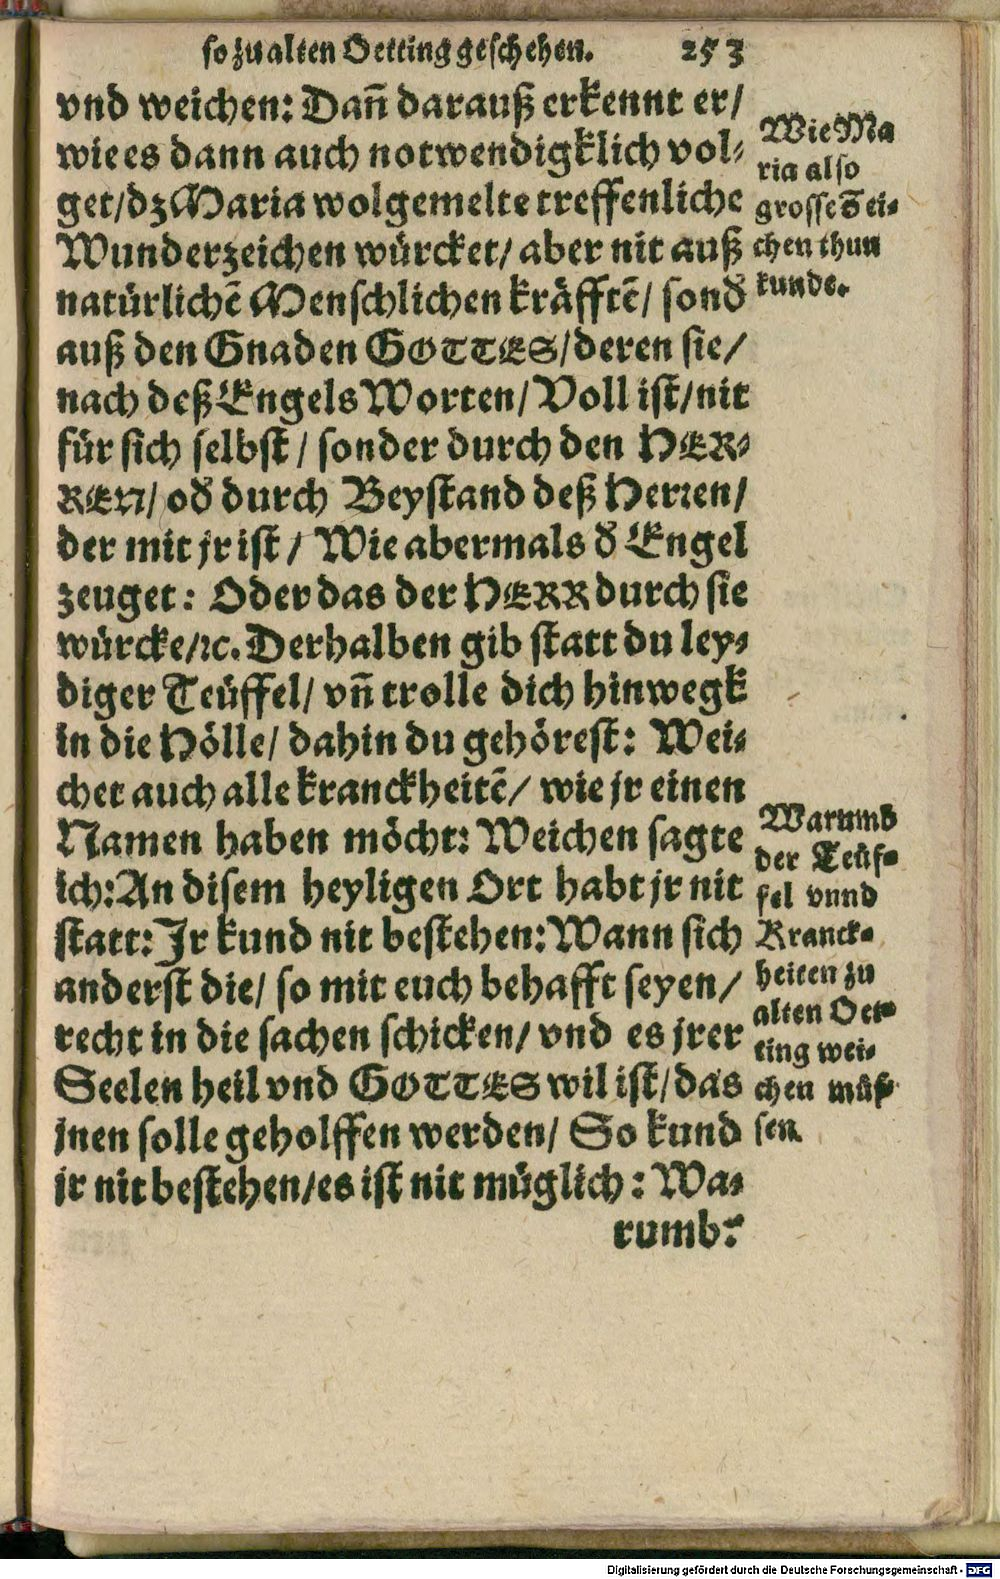 so zu alten Oetting geschehen. 253
vnd weichen: Dañ darauß erkennt er/
wie es dann auch notwendigklich vol-
get/dz Maria wolgemelte treffenliche
Wunderzeichen würcket/ aber nit auß
natürlichẽ Menschlichen kräfftẽ/ sond̃
auß den Gnaden GOTTES/deren sie/
nach deß Engels Worten/ Voll ist/nit
für sich selbst / sonder durch den HER-
REN/ od̃ durch Beystand deß Herren/
der mit jr ist / Wie abermals d̃ Engel
zeuget: Oder das der HERR durch sie
würcke/ꝛc. Derhalben gib statt du ley-
diger Teüffel/ vñ trolle dich hinwegk
in die Hölle/ dahin du gehörest: Wei-
chet auch alle kranckheitẽ/ wie jr einen
Namen haben möcht: Weichen sagte
ich: An disem heyligen Ort habt jr nit
statt: Jr kund nit bestehen: Wann sich
anderst die/ so mit euch behafft seyen/
recht in die sachen schicken/ vnd es jrer
Seelen heil vnd GOTTES wil ist/das
jnen solle geholffen werden/ So kund
jr nit bestehen/es ist nit müglich: Wa-
rumb:
Wie Ma
ria also
grosse Zei-
chen thun
kunde.
Warumb
der Teüf-
fel vnnd
Kranck-
heiten zu
alten Oet-
ting wei-
chen müs-
sen.
Digitalisierung gefördert durch die Deutsche Forschungsgemeinschaft - DFG